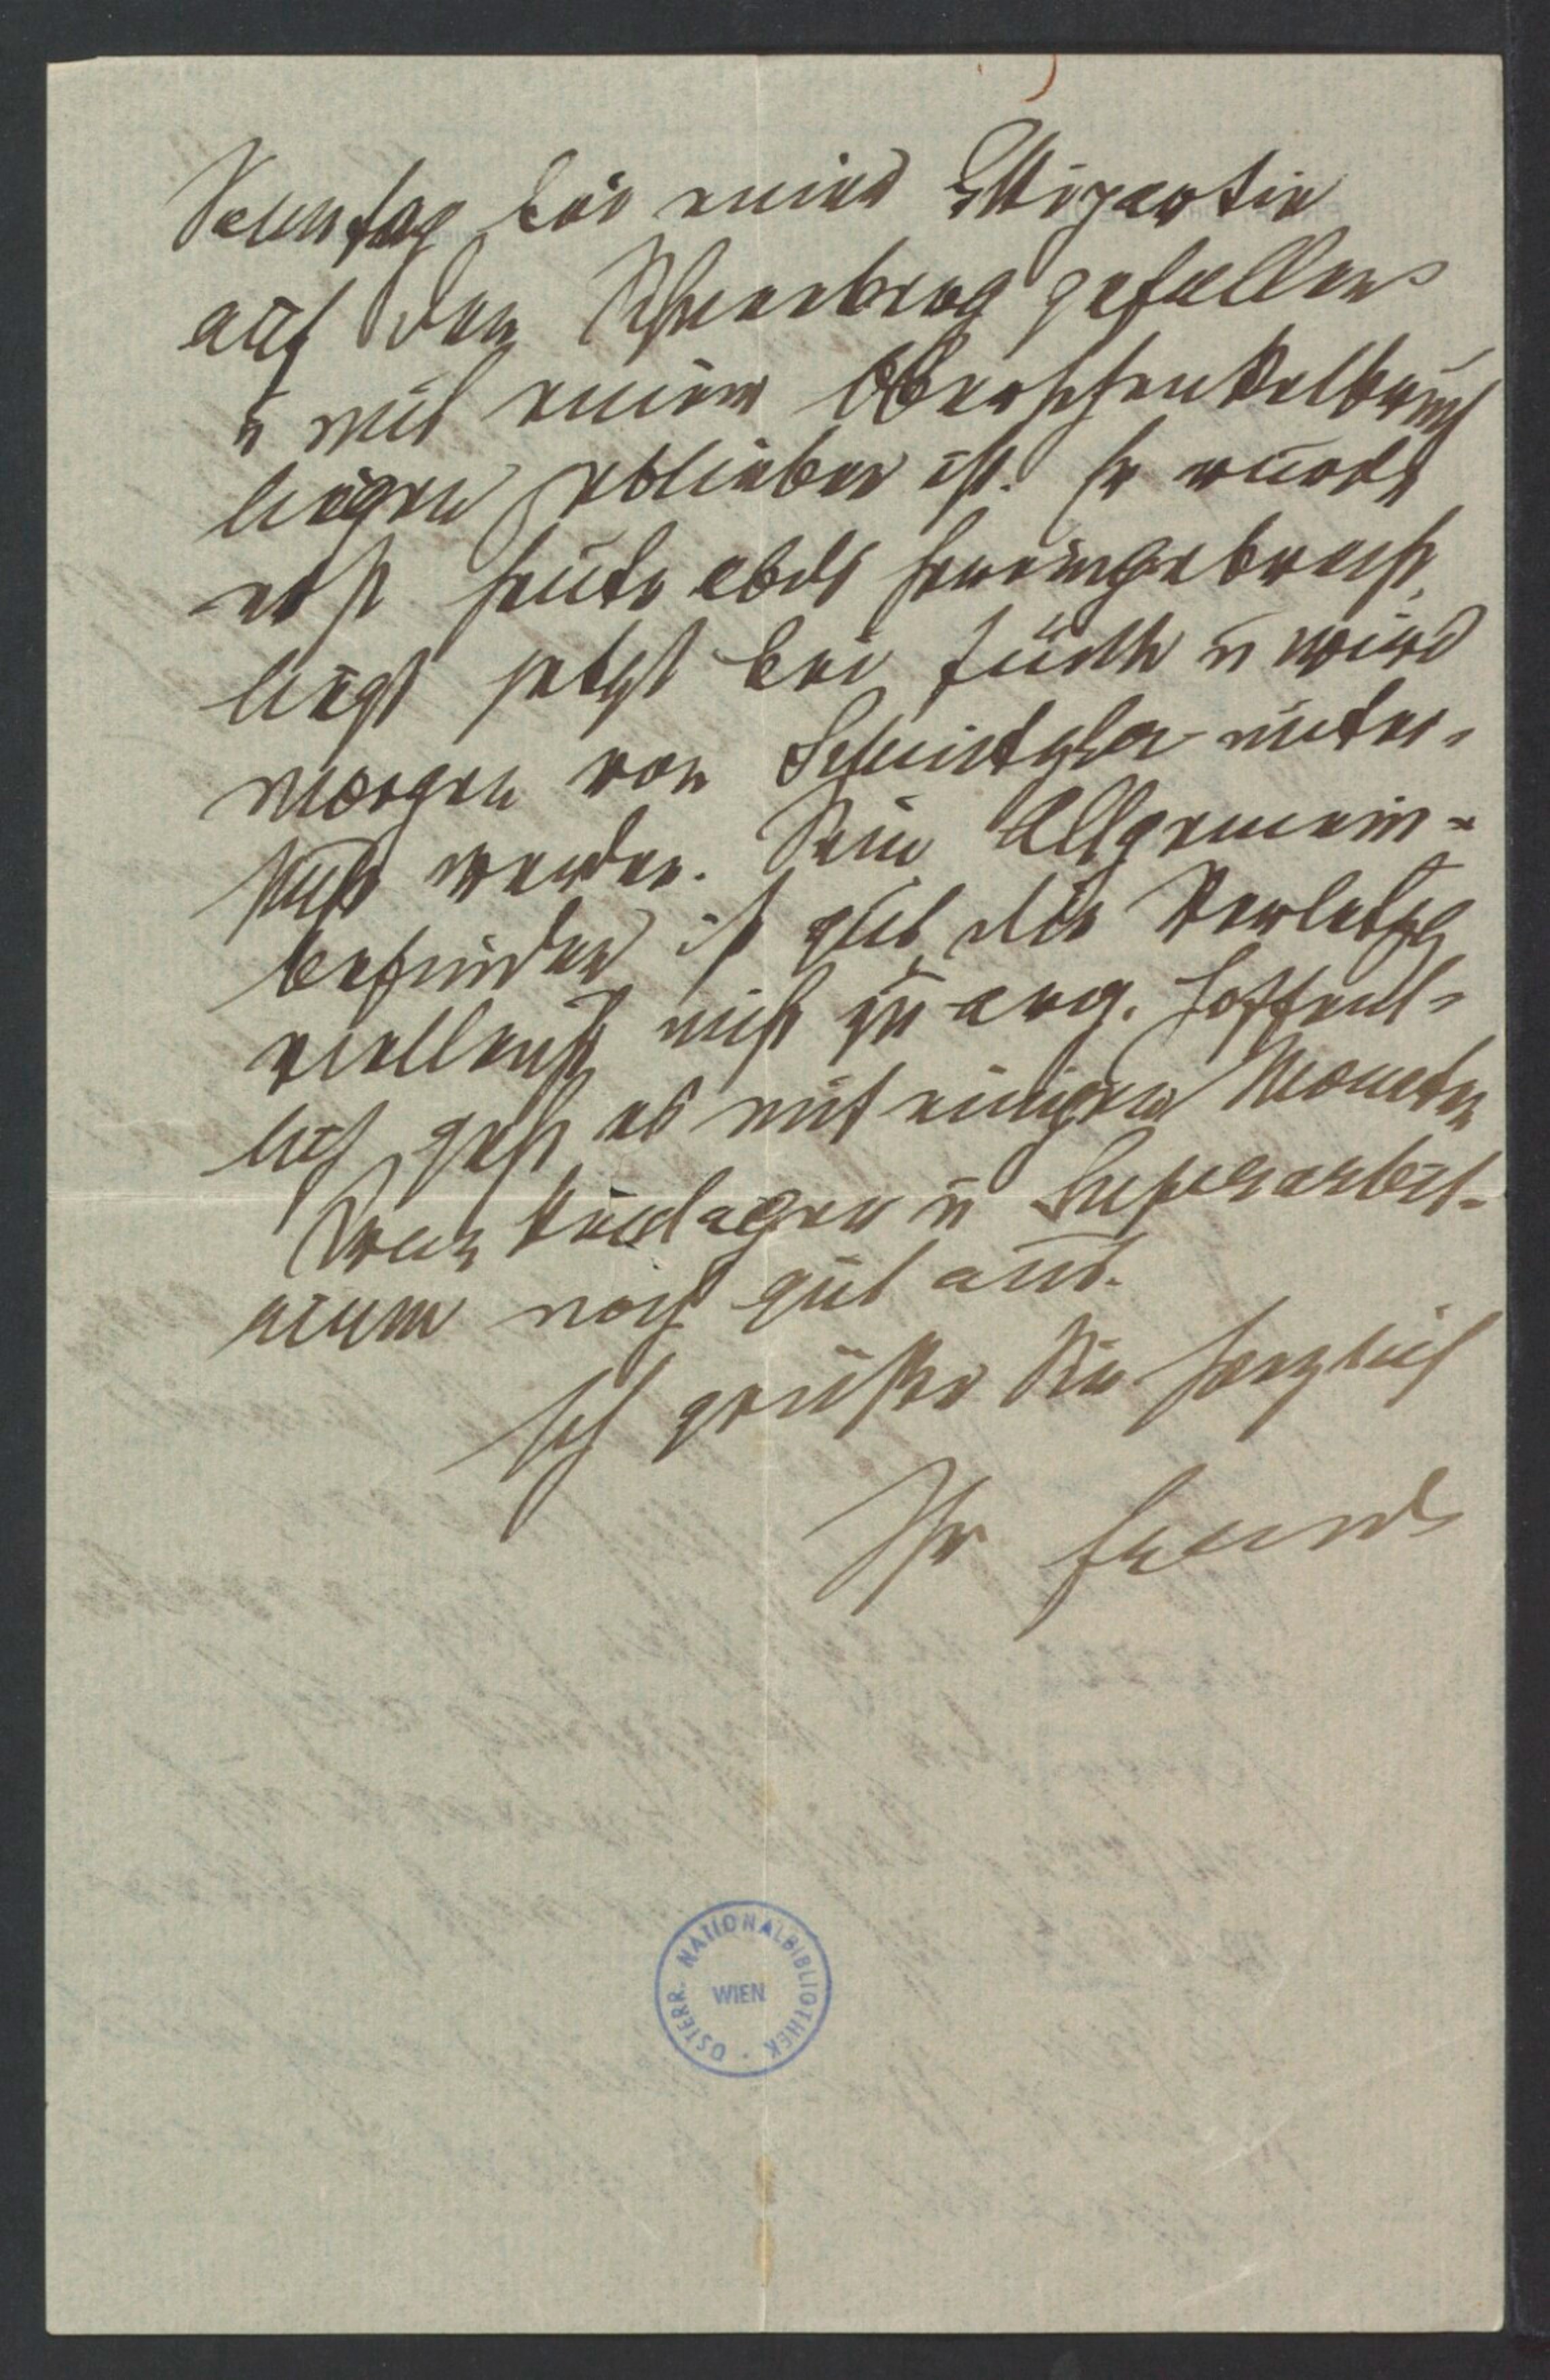 Sonntag bei einer Skipartie
auf dem Schneeberg gefallen
u mit einem Oberschenkelbruch
liegen geblieben ist. Er wurde
erst heute abds hereingebracht,
liegt jetzt bei Fürth u wird
morgen von Schnitzler unter-
sucht werden. Sein Allgemein-
befinden ist gut, die Verletzg
vielleicht nicht zu arg. Hoffent-
lich geht es mit einigen Monaten
Krankenlager u Superarbitri-
rung noch gut aus.
Ich grüße Sie herzlich
Ihr Freud
ÖSTERR. NATIONALBIBLIOTHEK
WIEN